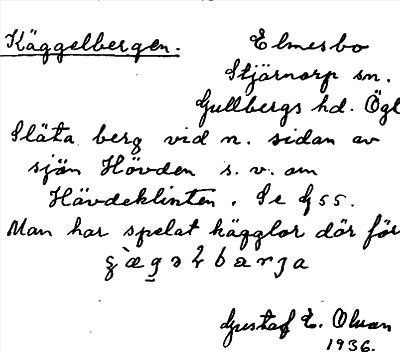 Käggelbergen. Elmesbo
Stjärnorp sn.
Gullbergs hd. Ögl
Släta berg vid n. sidan av
sjön Hövden s.v. om
Hävdeklinten. Se G 55.
Man har spelat kägglor där för
Gustaf E. Olsson
1936.